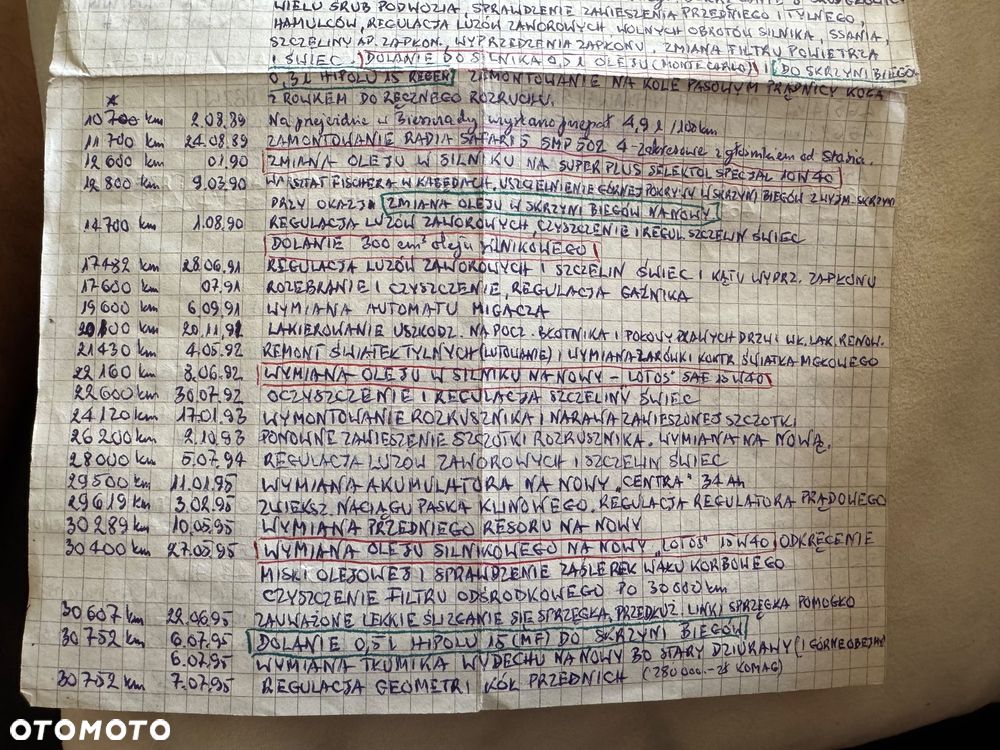 WIELU ŚRUB PODWOZIA, SPRAWDZENIE ZAWIESZENIA PRZEDNIEGO I TYLNEGO,
HAMULCÓW, REGULACJA LUZÓW ZAWOROWYCH WOLNYCH OBROTÓW SILNIKA, SSANIA,
SZCZELINY AP. ZAPŁON., WYPRZEDZENIA ZAPŁONU, ZMIANA FILTRU POWIETRZA
I ŚWIEC, DOLANIE DO SILNIKA 0,5 l OLEJU (MONTE CARLO) I DO SKRZYNI BIEGÓW
0,3 l HIPOLU 15 ZEMONTOWANIE NA KOLE PASOWYM PRĄDNICY KOŁA
Z ROWKIEM DO RĘCZNEGO ROZRUCHU.
10 700 km 2.08.89 Na przejeździe w Bieszczady wystano przepał 4,9 l/100km
11 700 km 24.08.89 ZAMONTOWANIE RADIA SAFARI 5 SMP 502 4-zakresowe z głośnikiem od Stasia.
12 600 km 01.90 ZMIANA OLEJU W SILNIKU NA SUPER PLUS SELEKTOL SPECJAL 10W40
12 800 km 9.03.90 WARSZTAT FISCHERA W ŁABĘDACH, USZCZELNIENIE GÓRNEJ POKRYWY W SKRZYNI BIEGÓW Z WYJM. SKRZYNI
PRZY OKAZJI ZMIANA OLEJU W SKRZYNI BIEGÓW NA NOWY.
14 700 km 1.08.90 REGULACJA LUZÓW ZAWOROWYCH, CZYSZCZENIE I REGUL SZCZELIN ŚWIEC
DOLANIE 300 cm³ oleju silnikowego
17 482 km 28.06.91 REGULACJA LUZÓW ZAWOROWYCH I SZCZELIN ŚWIEC I KĄTU WYPRZ. ZAPŁONU
17 600 km 07.91 ROZEBRANIE I CZYSZCZENIE, REGULACJA GAŹNIKA
19 600 km 6.09.91 WYMIANA AUTOMATU MIGACZA
20 100 km 20.11.91 LAKIEROWANIE USZKODZ. NA POCZ. BŁOTNIKA I POŁOWY PRAWYCH DRZWI WK. LAK. RENOW.
21 430 km 4.05.92 REMONT ŚWIATEK TYLNYCH (LUTOWANIE) I WYMIANA ŻARÓWKI KONTR ŚWIATŁA MGŁOWEGO
22 160 km 3.06.92 WYMIANA OLEJU W SILNIKU NA NOWY – "LOTOS" SAE 15W40
22 600 km 30.07.92 OCZYSZCZENIE I REGULACJA SZCZELINY ŚWIEC
24 120 km 17.01.93 WYMONTOWANIE ROZRUSZNIKA I NAPRAWA ZAWIESZONEJ SZCZOTKI
26 200 km 2.10.93 PONOWNE ZAWIESZENIE SZCZOTKI ROZRUSZNIKA. WYMIANA NA NOWĄ.
28 000 km 5.07.94 REGULACJA LUZÓW ZAWOROWYCH I SZCZELIN ŚWIEC
29 500 km 11.01.95 WYMIANA AKUMULATORA NA NOWY "CENTRA" 34 Ah
29 619 km 3.02.95 ZWIĘKSZ. NACIĄGU PASKA KLINOWEGO. REGULACJA REGULATORA PRĄDOWEGO
30 289 km 10.05.95 WYMIANA PRZEDNIEGO RESORU NA NOWY
30 400 km 27.05.95 WYMIANA OLEJU SILNIKOWEGO NA NOWY "LOTOS" 15W40 ODKRĘCENIE
MISKI OLEJOWEJ I SPRAWDZENIE ZAŚLEPEK WAŁU KORBOWEGO
CZYSZCZENIE FILTRU ODŚRODKOWEGO PO 30 000 km
30 607 km 22.06.95 ZAUWAŻONE LEKKIE ŚLIZGANIE SIĘ SPRZĘGŁA, PRZEDŁUŻ. LINKI SPRZĘGŁA POMOGŁO
30 752 km 6.07.95 DOLANIE 0,5 l HIPOLU 15 (MF) DO SKRZYNI BIEGÓW
6.07.95 WYMIANA TŁUMIKA WYDECHU NA NOWY BO STARY DZIURAWY (I GÓRNE OBEJMY)
30 752 km 7.07.95 REGULACJA GEOMETRI KÓŁ PRZEDNICH (280 000.- zł KOMAG)
OTOMOTO